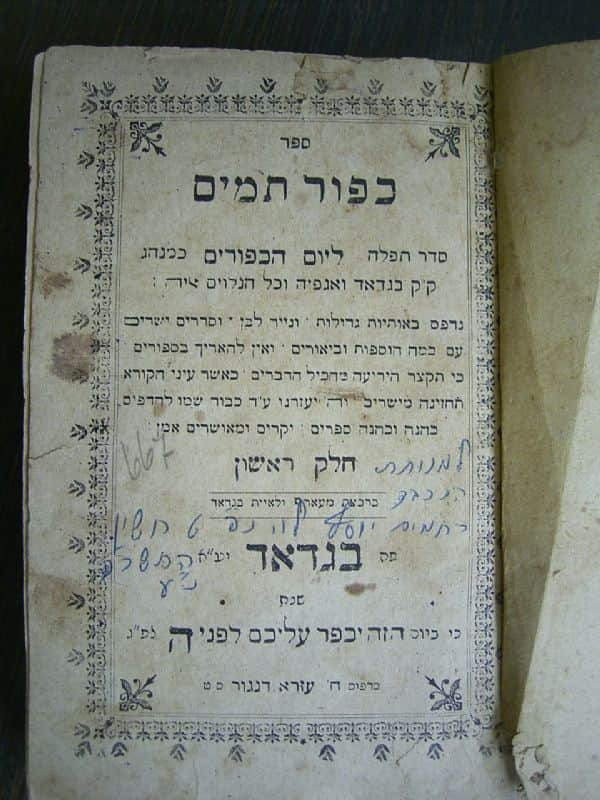 ספר
כפור תמים
סדר תפלה ליום הכפורים כמנהג
ק״ק בגדאד ואגפיה וכל הנלוים אליה :
נדפס באותיות גדולות ונייר לבן וסדרים ישרים
עם כמה הוספות וביאורים ואין להאריך בספורים
כי תקצר היריעה מהכיל הדברים כאשר עיני הקורא
תחזינה מישרים יעזרנו ע״ד כבוד שמו להדפיס
כהנה וכהנה ספרים יקרים ומאושרים אמן
667
חלק ראשון למנוחת
ברכצת מעארף ולאיית בגדאד
רחמים יוסף ט חשון
פה בגדאד יע״א
נ״ע
שנת
כי ביום הזה יכפר עליכם לפני ה לפ״ג
בדפוס ח׳ עזרא דנגור ס ט